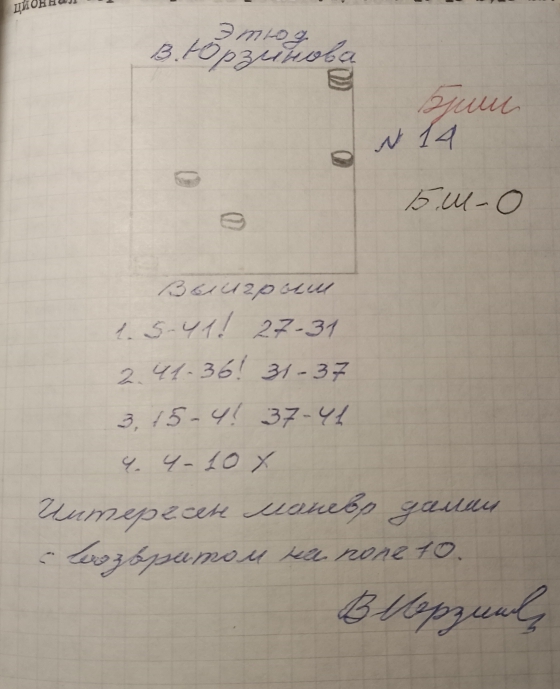 Этюд
В. Юрзинова
Бриш
№ 14
Б.Ш-О
Выигрыш
1. 5-41! 27-31
2. 41-36! 31-37
3. 15-4! 37-41
4. 4-10 X
Интересен маневр дамки
с возвратом на поле 10.
В Юрзинов